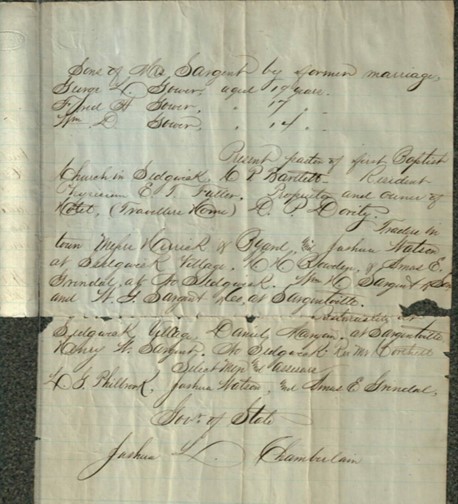 Sons of Mr Sargent by former marriage,
George L. Gower, aged 19 years.
Fred A Gower, " 17 "
Wm. D Gower, " 14 "
Present pastor of first Baptist
Church in Sedgwick, C P Bartlett. Resident
Physician E. T. Fuller. Propriety and owner of
Hotel, (Travellers Home) R. P. Dority.
Traders in
town Herrick & Byard, Joshua Watson,
at Sedgwick Village. H. H. Bowden, & Amos E.
at No Sedgwick. Wm H. Sargent & Son
and W. G. Sargent at Sargentville.
at
Sedgwick Village. Daniel at Sargentville
Henry W. Sargent. No Sedgwick Mr
Select Men
Philbrook. Joshua Watson, and Amos E
Gov. of State
Joshua L. Chamberlain